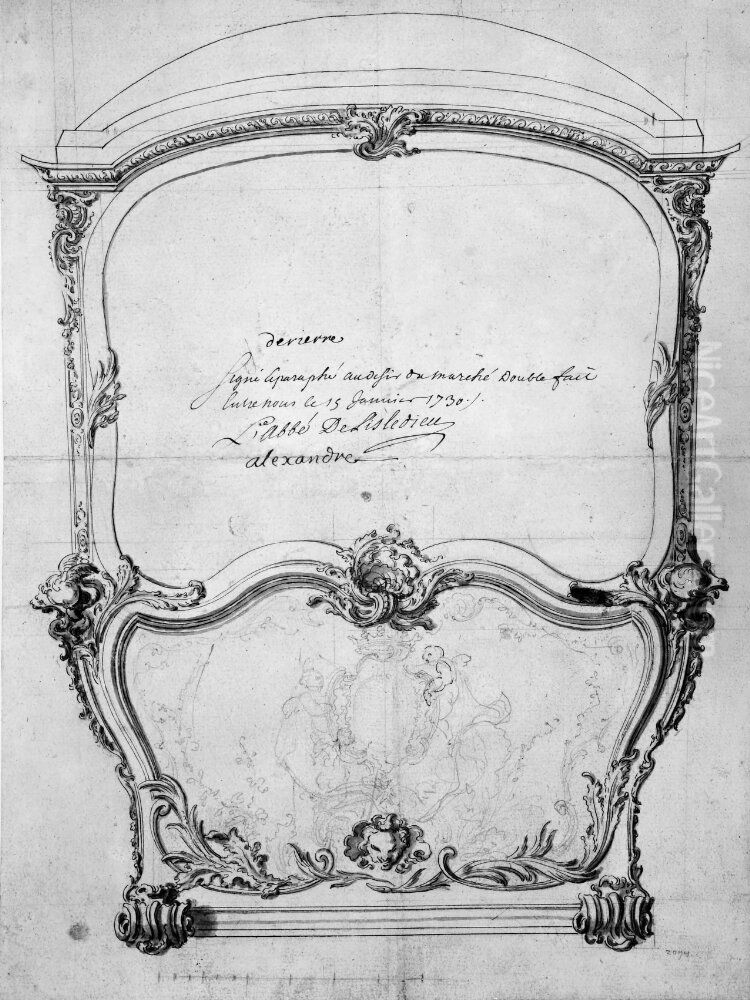 derierre
Signé & paraphé au desir du marché Double fait
Entre nous le 15 Janvier 1730 ./.
L'abbé De Lisledieu
alexandre
NiceArtGaller
2094